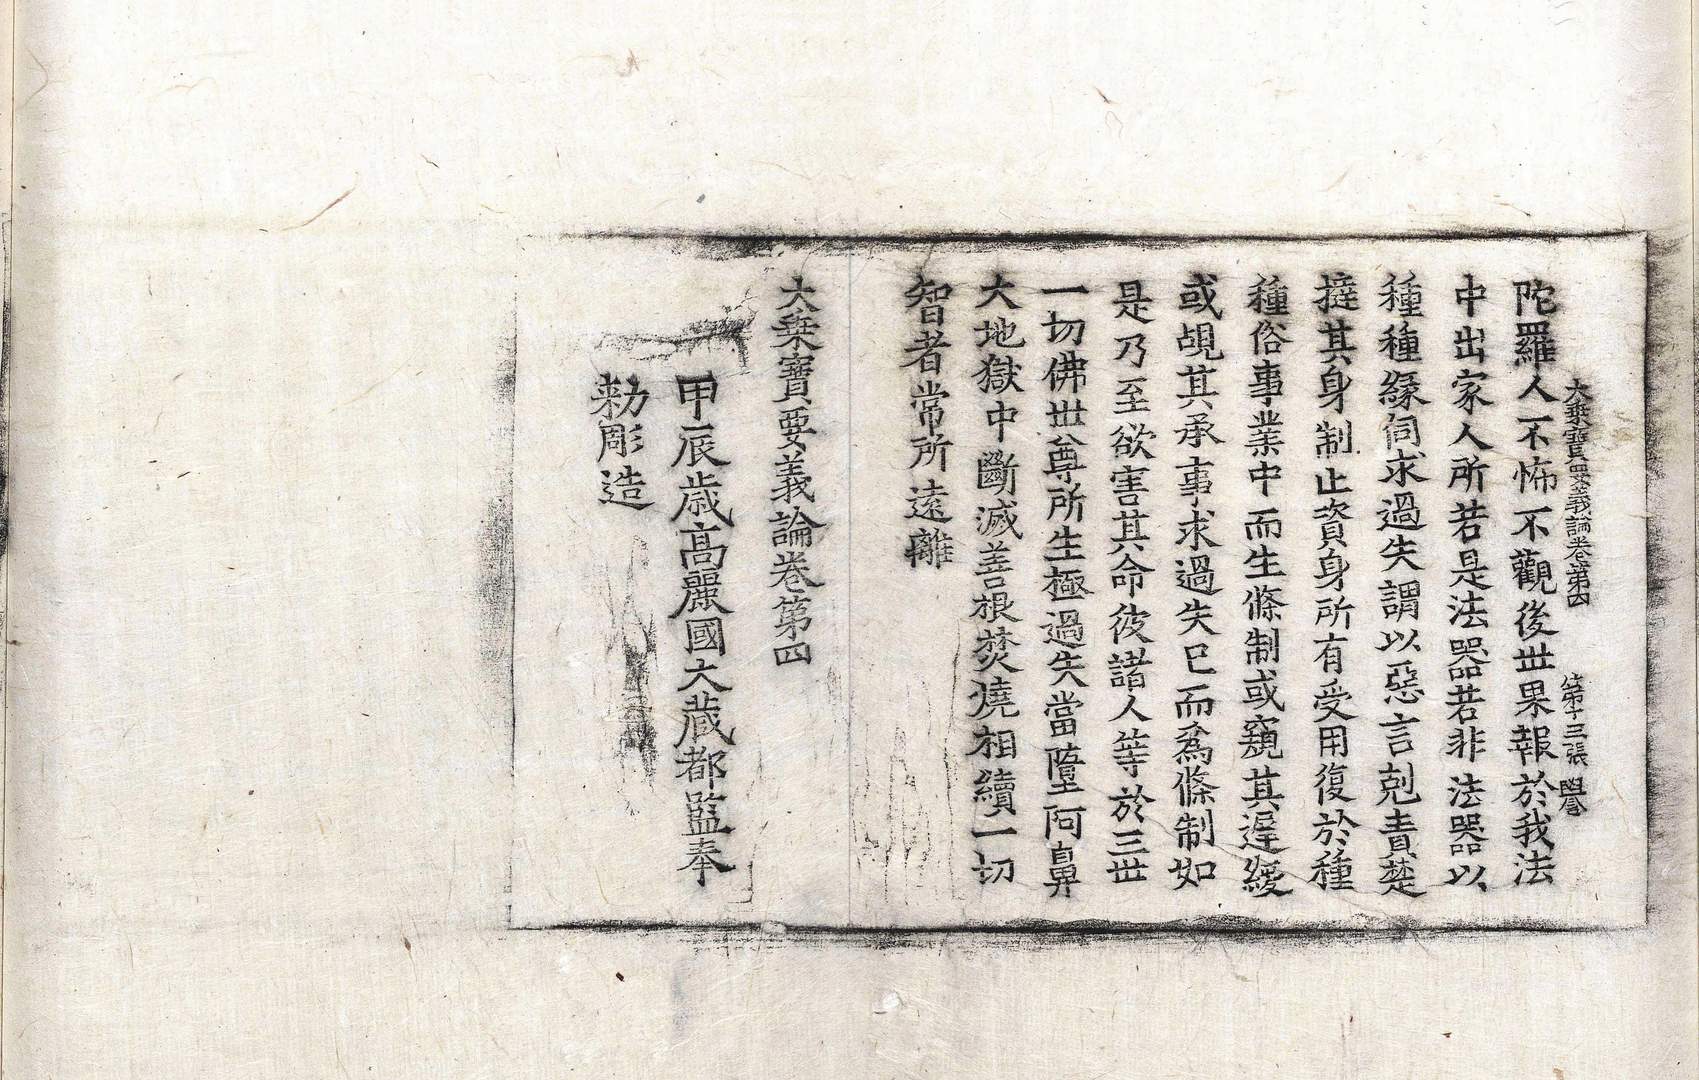 大乗寶要義論卷第四　第十三張　譽
陀羅人不怖不觀後世果報於我法
中出家人所若是法器若非法器以
種種緣伺求過失謂以惡言剋責楚
撻其身制止資身所有受用復於種
種俗事業中而生條制或窺其遅緩
或覘其承事求過失已而爲條制如
是乃至欲害其命彼諸人等於三世
一切佛世尊所生極過失當墮阿鼻
大地獄中斷滅善根焚燒相續一切
智者常所遠離
大乗寶要義論卷第四
甲辰歲高麗國大藏都監奉
勑彫造